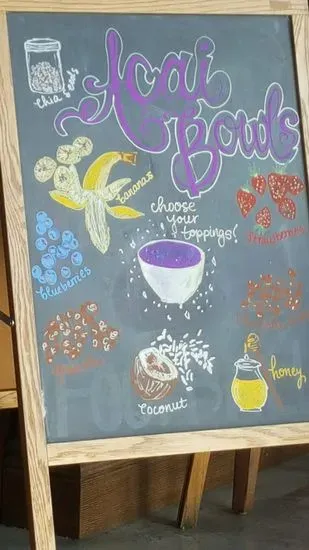 chia seeds
Acai
Bowls
bananas
choose
your
toppings!
strawberries
blueberries
honey
coconut